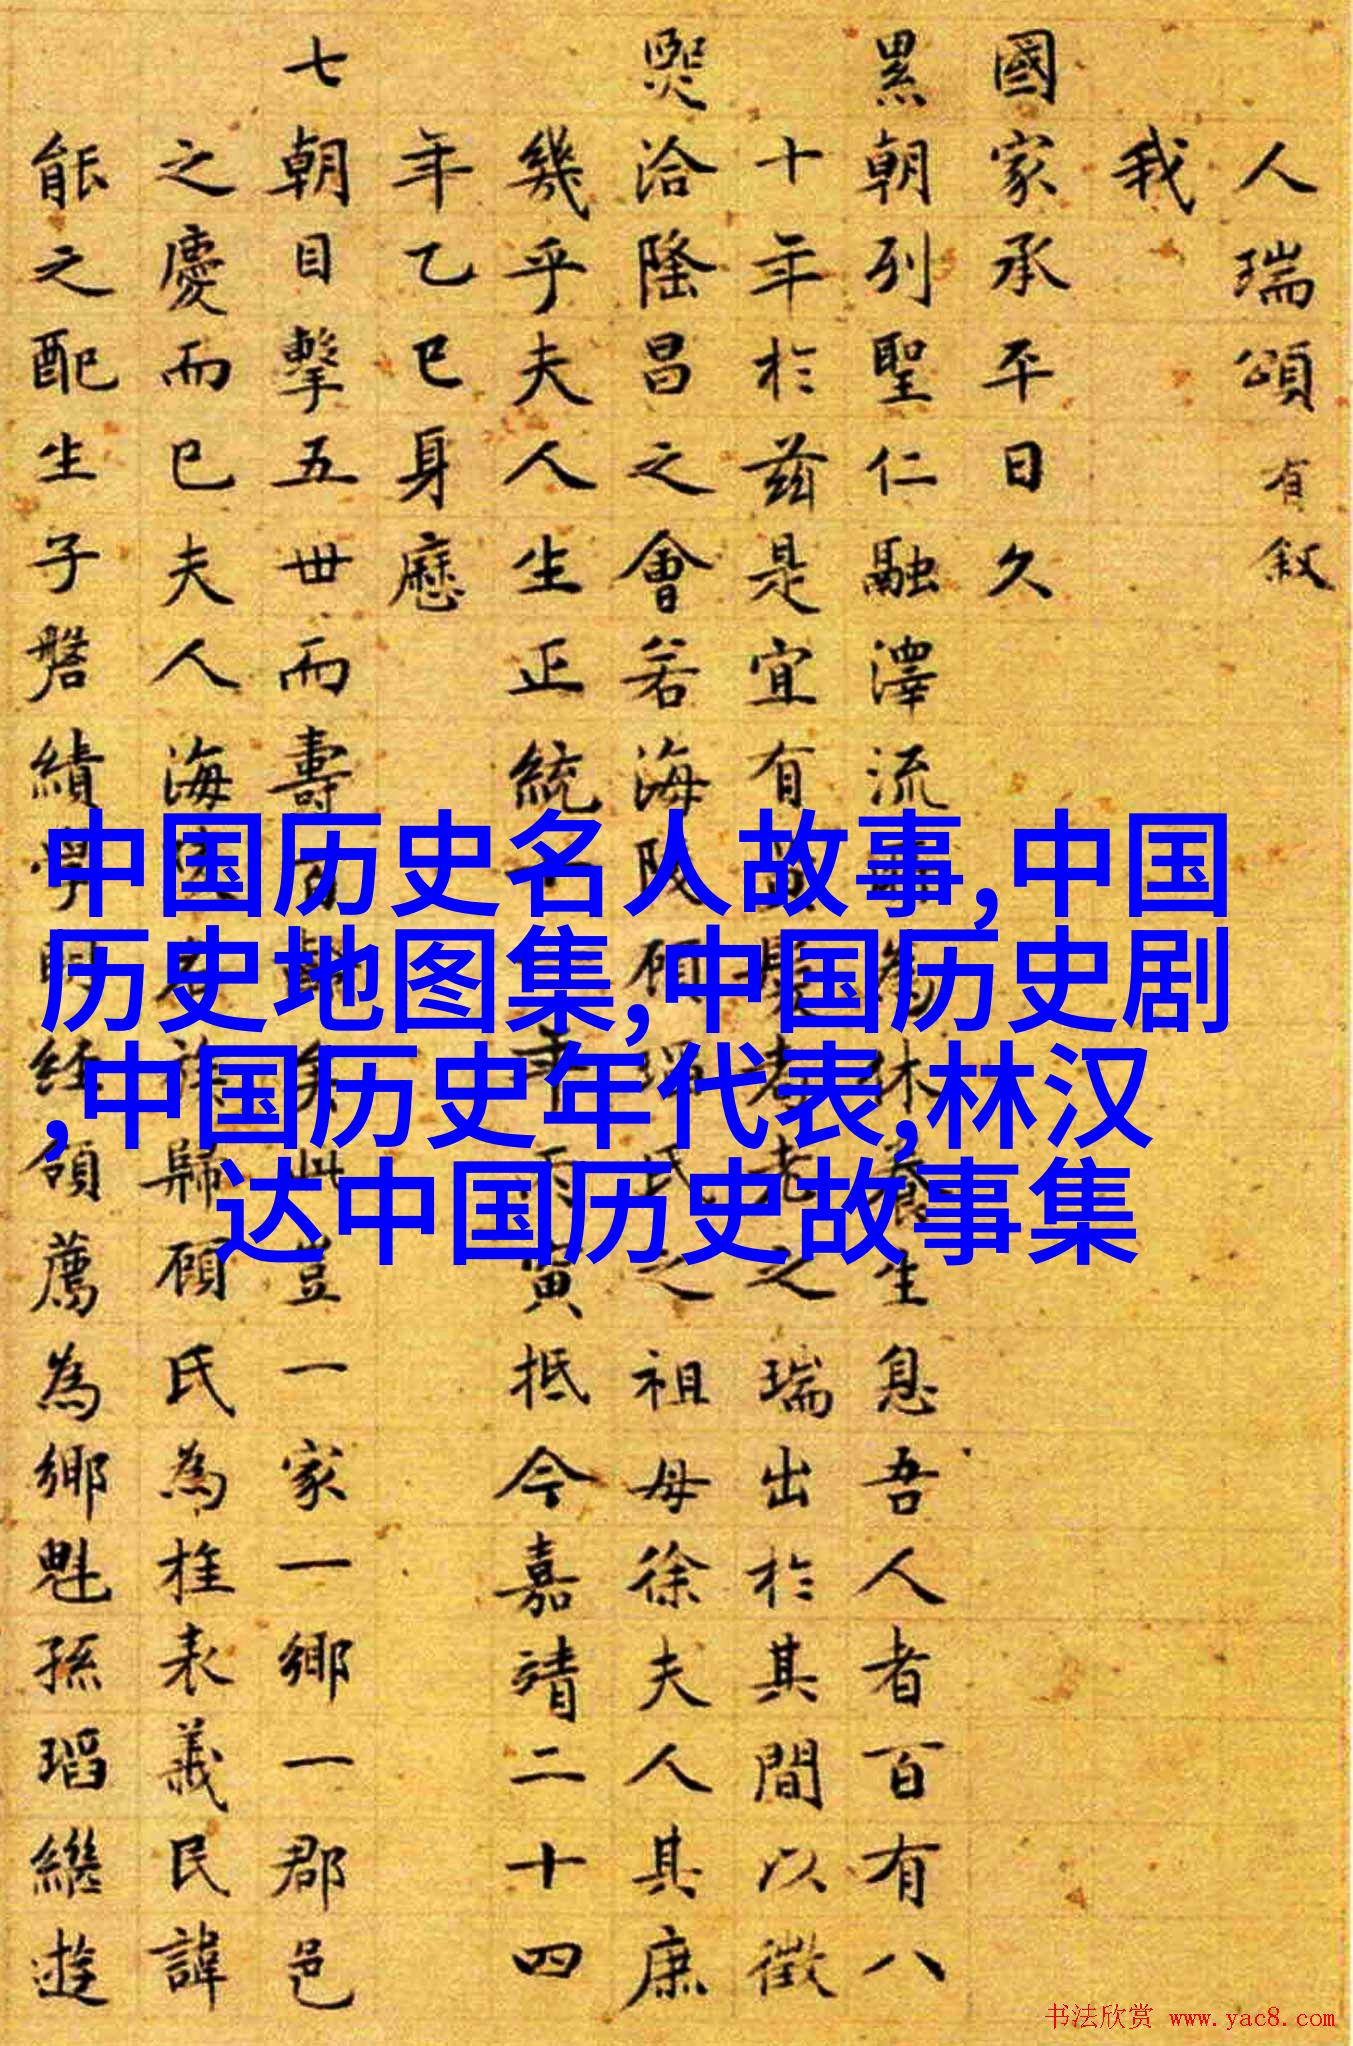 人瑞頌有叙
我
國家承平日久
累朝列聖仁融澤流為休養生息吾人者百有八
十年於兹是宜有耆老之瑞出於其間以徵
熙洽隆昌之會若海陵顧氏之祖母徐夫人其庶
幾乎夫人生正統十年丙寅抵今嘉靖二十四
年乙巳身歷
七朝目擊五世而壽百齡矣此豈一家一鄉一郡邑
之慶而已夫人海陵族歸顧氏為桂表義民諱
能之配生子磐績學明經領薦為鄉魁孫瑫繼遊
中国历史名人故事,中国
历史地图集,中国历史剧
,中国历史年代表,林汉
达中国历史故事集
书法欣赏 www.yac8.com